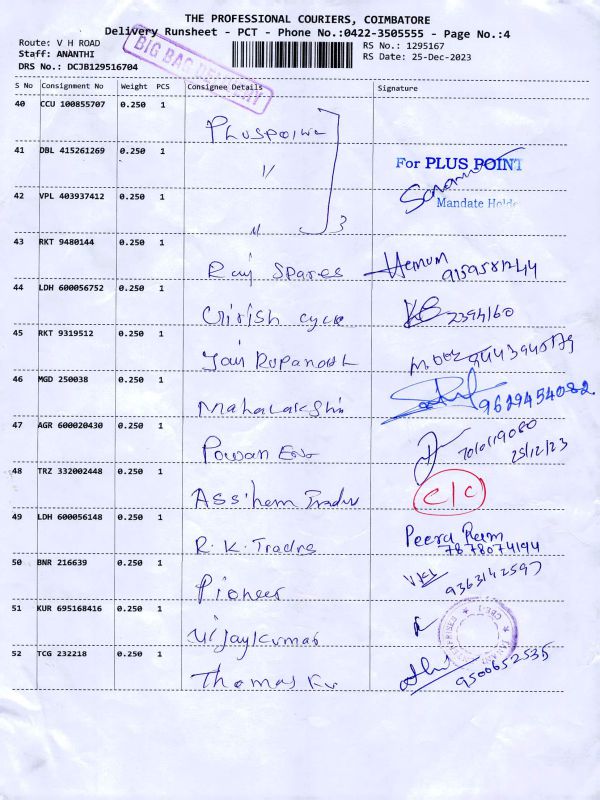 THE PROFESSIONAL COURIERS, COIMBATORE
Delivery Runsheet - PCT - Phone No.:0422-3505555 - Page No.:4
Route: V H ROAD
RS No.: 1295167
Staff: ANANTHI
RS Date: 25-Dec-2023
DRS No.: DCJB129516704
BIG BAG DELIVERY
S No Consignment No Weight PCS Consignee Details Signature
40 CCU 100855707 0.250 1
41 DBL 415261269 0.250 1
For PLUS POINT
42 VPL 403937412 0.250 1
Mandate Holde
3
43 RKT 9480144 0.250 1
Raj Spares
44 LDH 600056752 0.250 1
Girish cycle 2394160
45 RKT 9319512 0.250 1
Jain
46 MGD 250038 0.250 1
Mahalakshmi 9629454082
47 AGR 600020430 0.250 1
Powan Eng
25/12/23
48 TRZ 332002448 0.250 1
Traders c/c
49 LDH 600056148 0.250 1
R.K. Tradrs Peera Ram
7878074194
50 BNR 216639 0.250 1
Pioneer 9363142597
51 KUR 695168416 0.250 1
Vijaykumar
52 TCG 232218 0.250 1
Thomas 9500652535